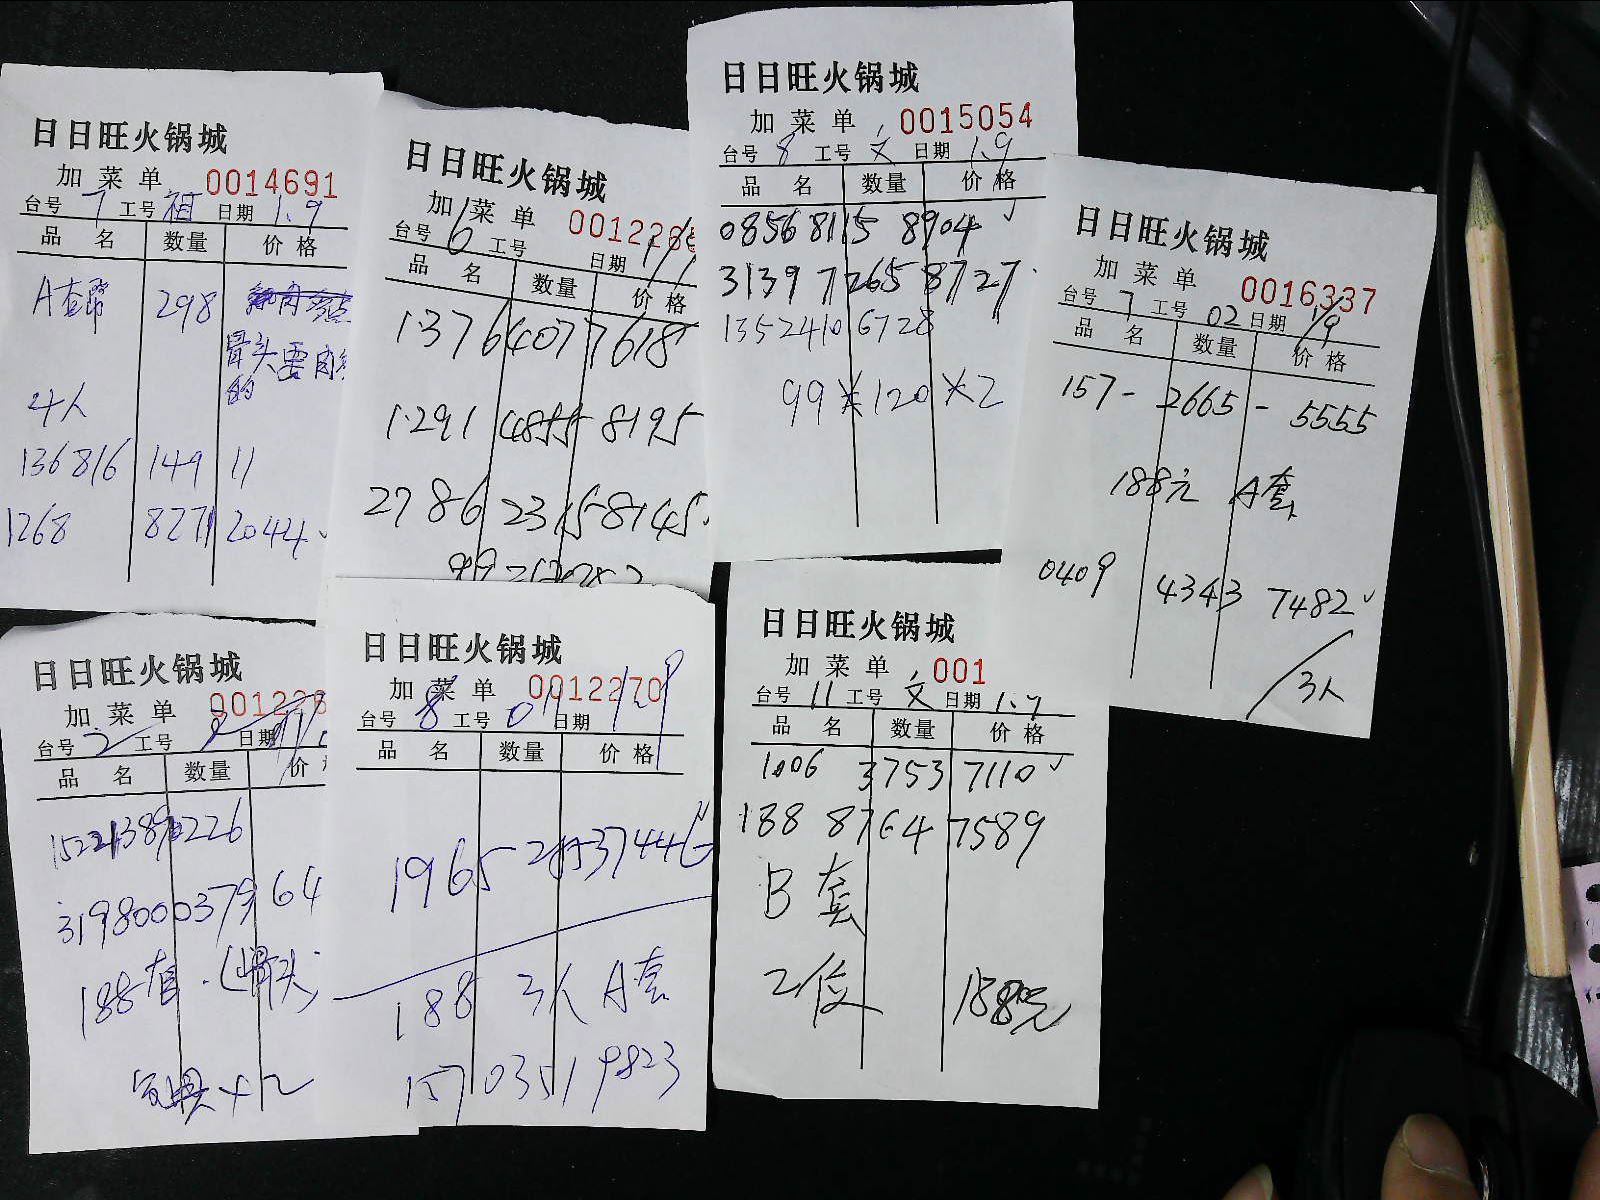 日日旺火锅城
加菜单 0014691
台号 7 工号 祖 日期 1.9
品名 数量 价格
A套帶 298
骨头要肉
的
4人
136816 149 11
1268 8271 2044
日日旺火锅城
加菜单 001226
台号 6 工号 日期 1/9
品名 数量 价格
1376 407 7618
1291 4855 8195
2786 2315 8145
日日旺火锅城
加菜单 0015054
台号 8 工号 文 日期 1.9
品名 数量 价格
08568115 8904
3139 7265 8727
13524106728
99 × 120 × 2
日日旺火锅城
加菜单 0016337
台号 7 工号 02 日期 1/9
品名 数量 价格
157 - 2665 - 5555
188元 A套
0409 4343 7482
3人
日日旺火锅城
加菜单 001226
台号 2 工号 日期
品名 数量 价
15221389 0226
3198000379 64
188套 (骨头)
日日旺火锅城
加菜单 0012270
台号 8 工号 01 日期 1.9
品名 数量 价格
1965 37446
188 3人 A套
15703519823
日日旺火锅城
加菜单 001
台号 11 工号 文 日期 1.9
品名 数量 价格
1006 3753 7110
188 8764 7589
B套
2位 188元